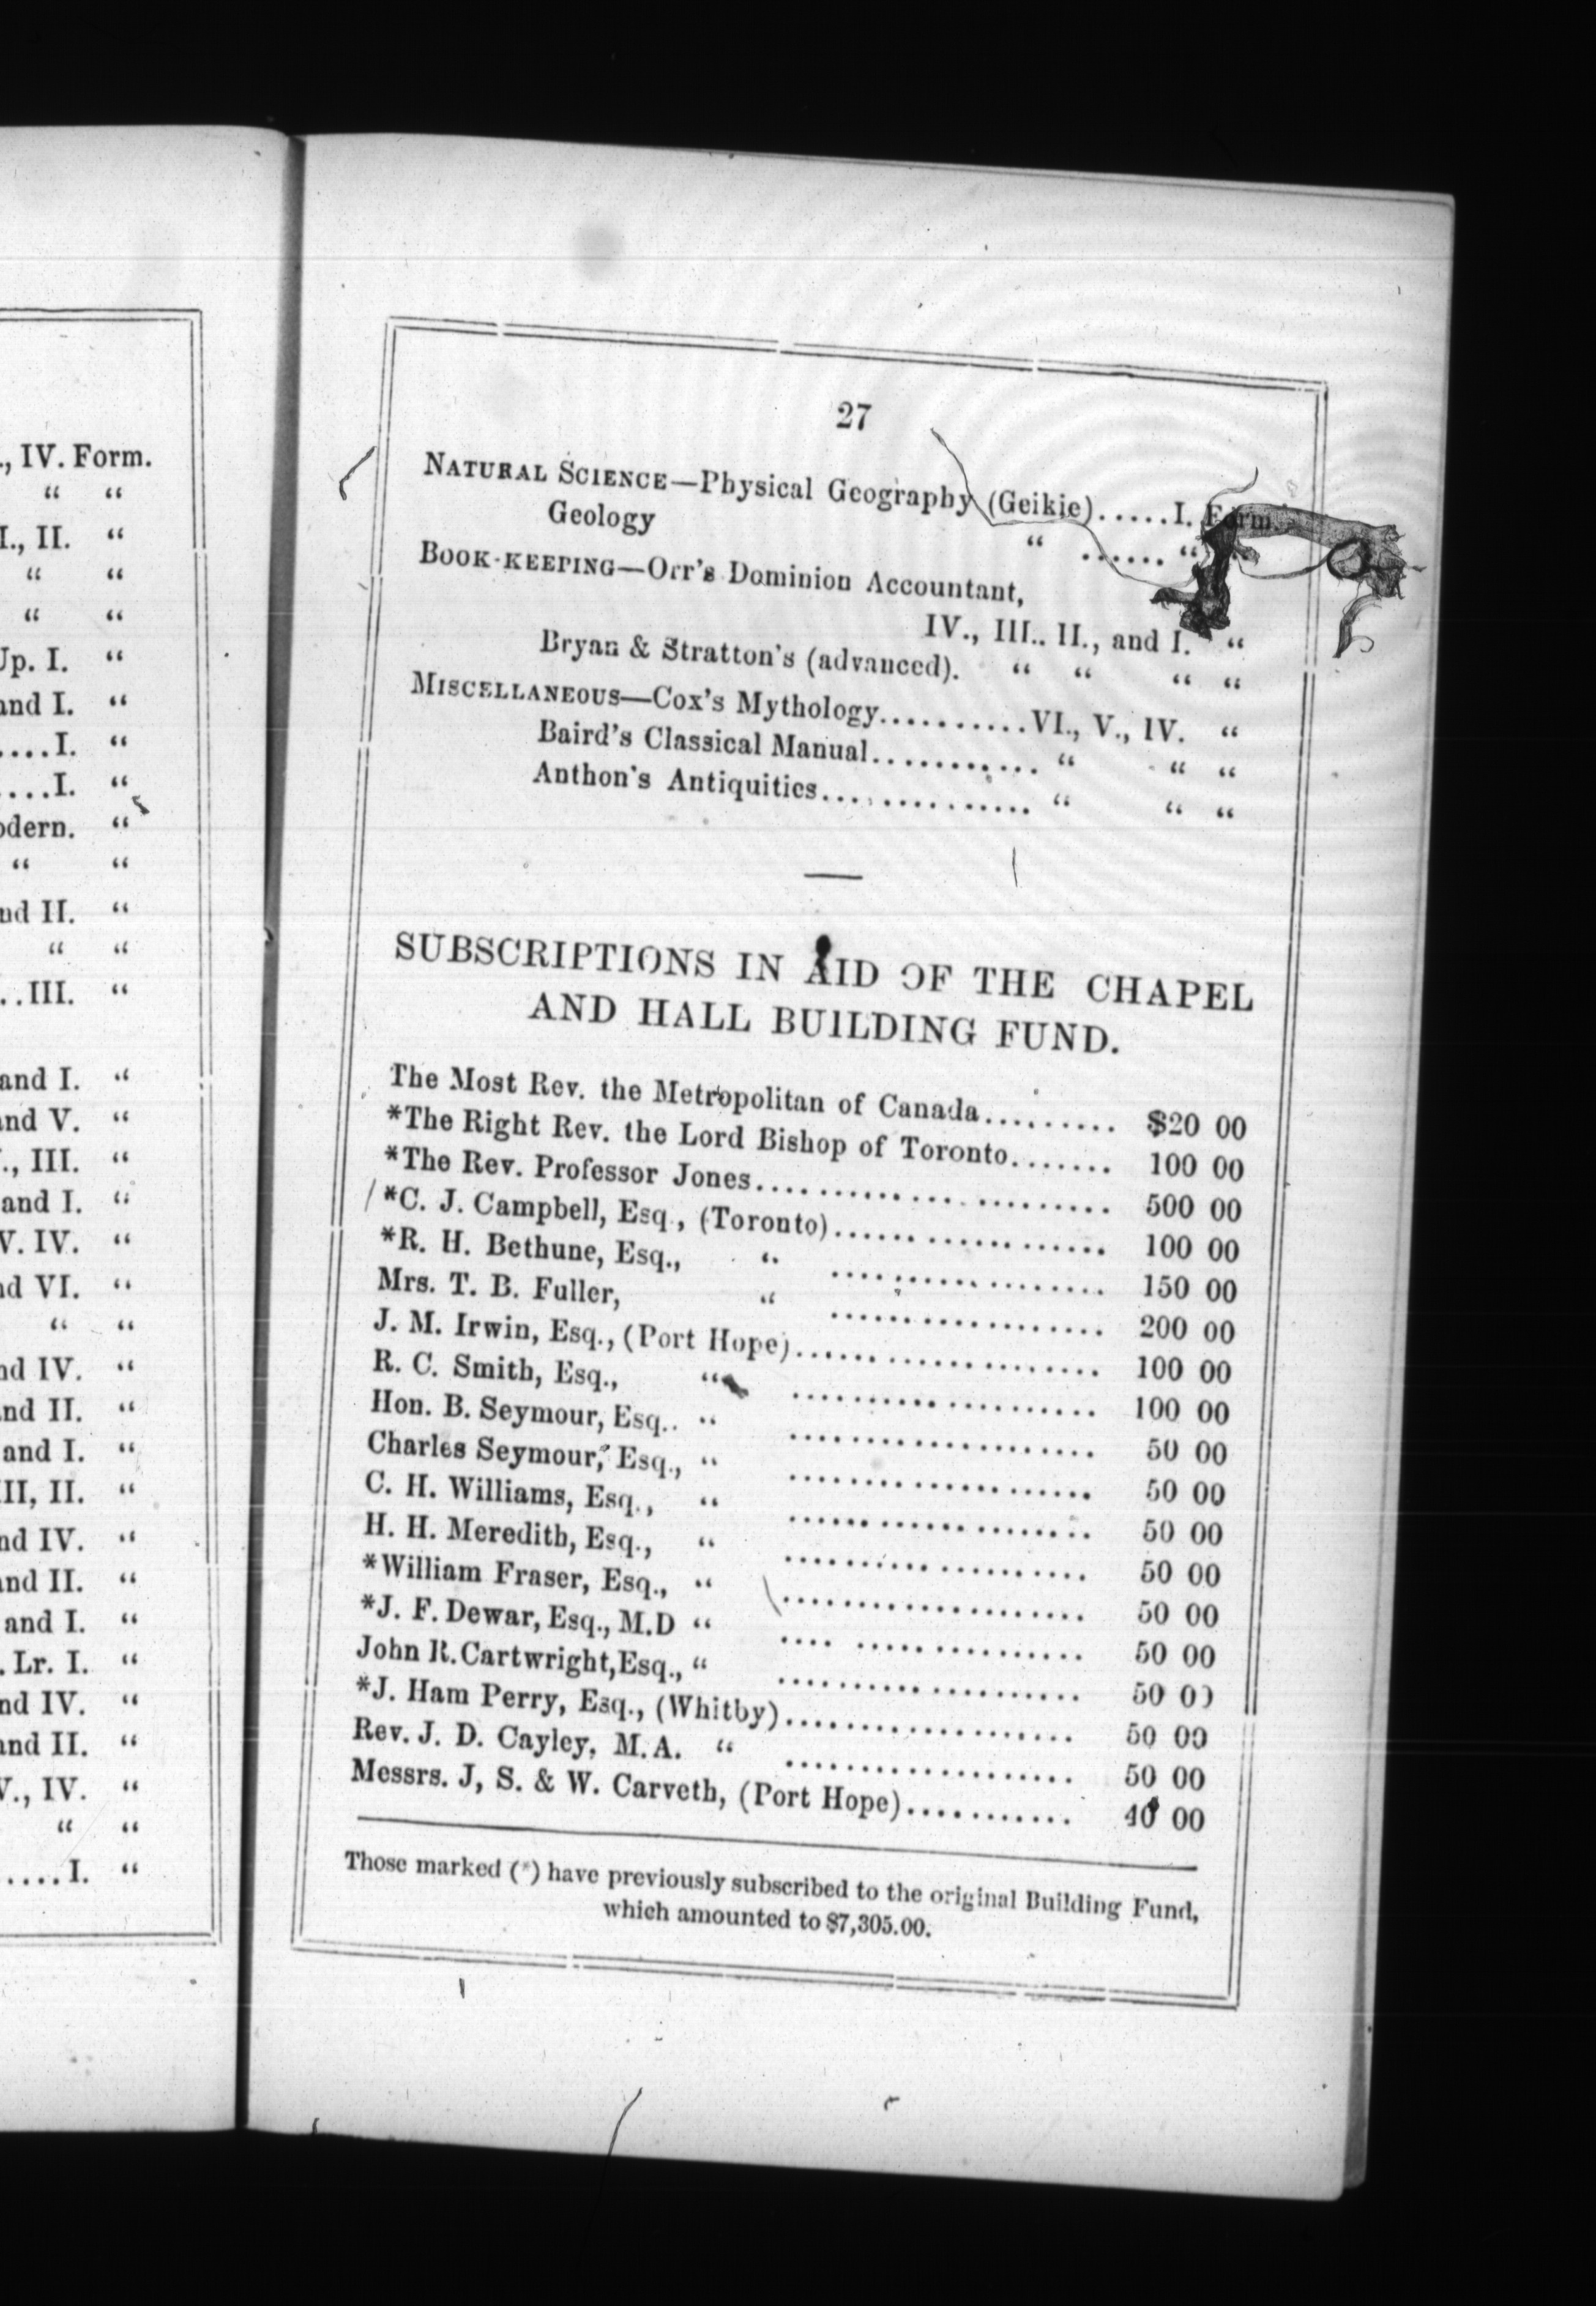 ., IV. Form.
“ “
I., II. “
“ “
“ “
Up. I. “
and I. “
....I. “
....I. “
odern. “
“ “
nd II. “
“ “
..III. “
and I. “
and V. “
., III. “
and I. “
V. IV. “
nd VI. “
“ “
nd IV. “
and II. “
and I. “
III, II. “
nd IV. “
and II. “
and I. “
. Lr. I. “
nd IV. “
and II. “
V., IV. “
“ “
.....I. “
27
NATURAL SCIENCE—Physical Geography (Geikie).....I. Form.
Geology “ ...... “
BOOK-KEEPING—Orr's Dominion Accountant,
IV., III.. II., and I. “
Bryan & Stratton's (advanced). “ “ “ “
MISCELLANEOUS—Cox's Mythology..........VI., V., IV. “
Baird's Classical Manual........... “ “ “
Anthon's Antiquities.............. “ “ “
SUBSCRIPTIONS IN AID OF THE CHAPEL
AND HALL BUILDING FUND.
The Most Rev. the Metropolitan of Canada......... $20 00
*The Right Rev. the Lord Bishop of Toronto....... 100 00
*The Rev. Professor Jones...................... 500 00
*C. J. Campbell, Esq., (Toronto).................. 100 00
*R. H. Bethune, Esq., “ .................. 150 00
Mrs. T. B. Fuller, “ .................. 200 00
J. M. Irwin, Esq., (Port Hope).................... 100 00
R. C. Smith, Esq., “ .................... 100 00
Hon. B. Seymour, Esq.. “ .................... 50 00
Charles Seymour, Esq., “ .................... 50 00
C. H. Williams, Esq., “ .................... 50 00
H. H. Meredith, Esq., “ .................... 50 00
*William Fraser, Esq., “ .................... 50 00
*J. F. Dewar, Esq., M.D “ .... ............... 50 00
John R. Cartwright, Esq., “ .................... 50 00
*J. Ham Perry, Esq., (Whitby)................... 50 00
Rev. J. D. Cayley, M.A. “ ................... 50 00
Messrs. J, S. & W. Carveth, (Port Hope)........... 40 00
Those marked (*) have previously subscribed to the original Building Fund,
which amounted to $7,305.00.